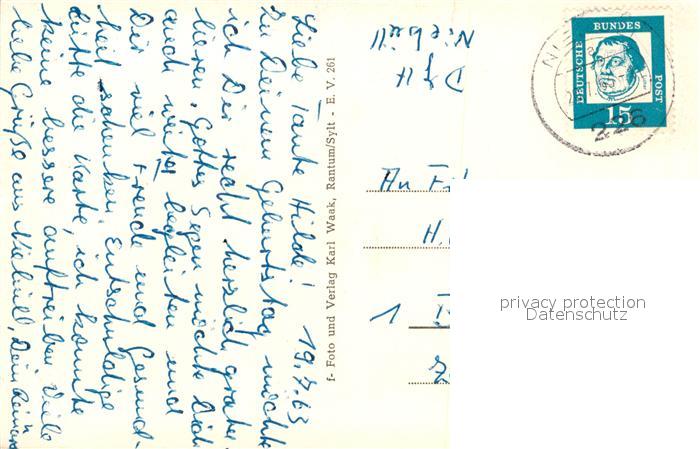 19.7.63
Liebe Tante Hilde!
Zu Deinem Geburtstag möchte
ich Dir recht herzlich gratu-
lieren. Gottes Segen möchte Dich
auch weiter begleiten und
Dir viel Freude und Gesund-
heit schenken. Entschuldige
bitte die Karte, ich konnte
keine bessere auftreiben. Viele
liebe Grüße aus Niebüll, Dein
f- Foto und Verlag Karl Waak, Rantum/Sylt - E. V. 261
Niebüll
An
H.
1
DEUTSCHE BUNDES POST
15
226
privacy protection
Datenschutz